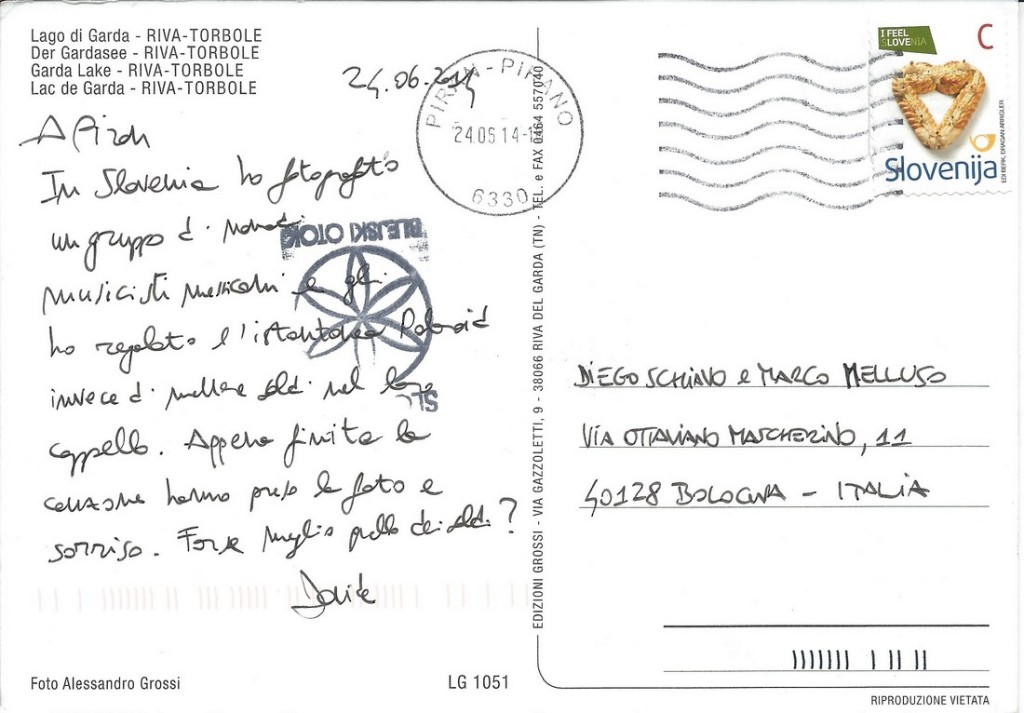 Lago di Garda - RIVA-TORBOLE
Der Gardasee - RIVA-TORBOLE
Garda Lake - RIVA-TORBOLE
Lac de Garda - RIVA-TORBOLE
24.06.2014
A Piran
In Slovenia ho fotografato
un gruppo di nomadi
musicisti messicani e gli
ho regalato l'istantanea Polaroid
invece di mettere soldi nel loro
cappello. Appena finita la
canzone hanno preso la foto e
sorriso. Forse meglio quella dei soldi?
Davide
Foto Alessandro Grossi
LG 1051
PIRAN - PIRANO
24.06.14-1
6330
BLEJSKI OTOK
SLO
EDIZIONI GROSSI - VIA GAZZOLETTI, 9 - 38066 RIVA DEL GARDA (TN) - TEL. e FAX 0464 557040
I FEEL
SLOVENIA
C
Slovenija
EDI BERK, DRAGAN ARRIGLER
DIEGO SCHIAVO e MARCO MELLUSO
VIA OTTAVIANO MASCHERINO, 11
40128 BOLOGNA - ITALIA
RIPRODUZIONE VIETATA